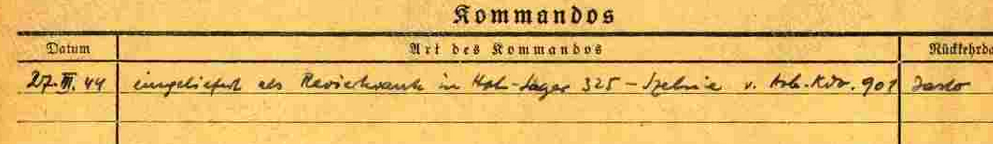 Kommandos
Datum Art des Kommandos Rückkehrda
27.III.44 eingeliefert als Revierkrank in Hpt-Lager 325 – v. Arb.Kdo. 901 Jaslo